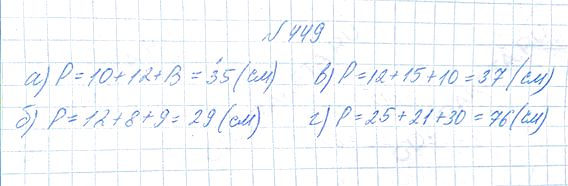 №449
а) P = 10 + 12 + 13 = 35 (см) в) P = 12 + 15 + 10 = 37 (см)
б) P = 12 + 8 + 9 = 29 (см) г) P = 25 + 21 + 30 = 76 (см)